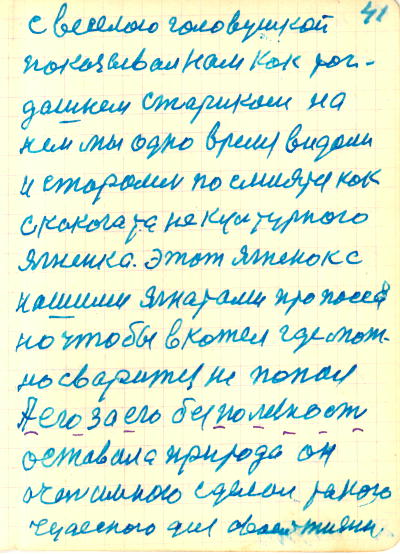 41
с веселою головушкой
показывал нам как
дашнем стариком на
нем мы одно время видали
и старалися посмиятся как
с какога та не культурного
ягненка. этот ягненок с
нашими ягнатами пропосеб
но чтобы в котел где мож-
но сваритца не попал
А его за его бесполезност
оставала природа он
очен много сделал такого
чудесного для